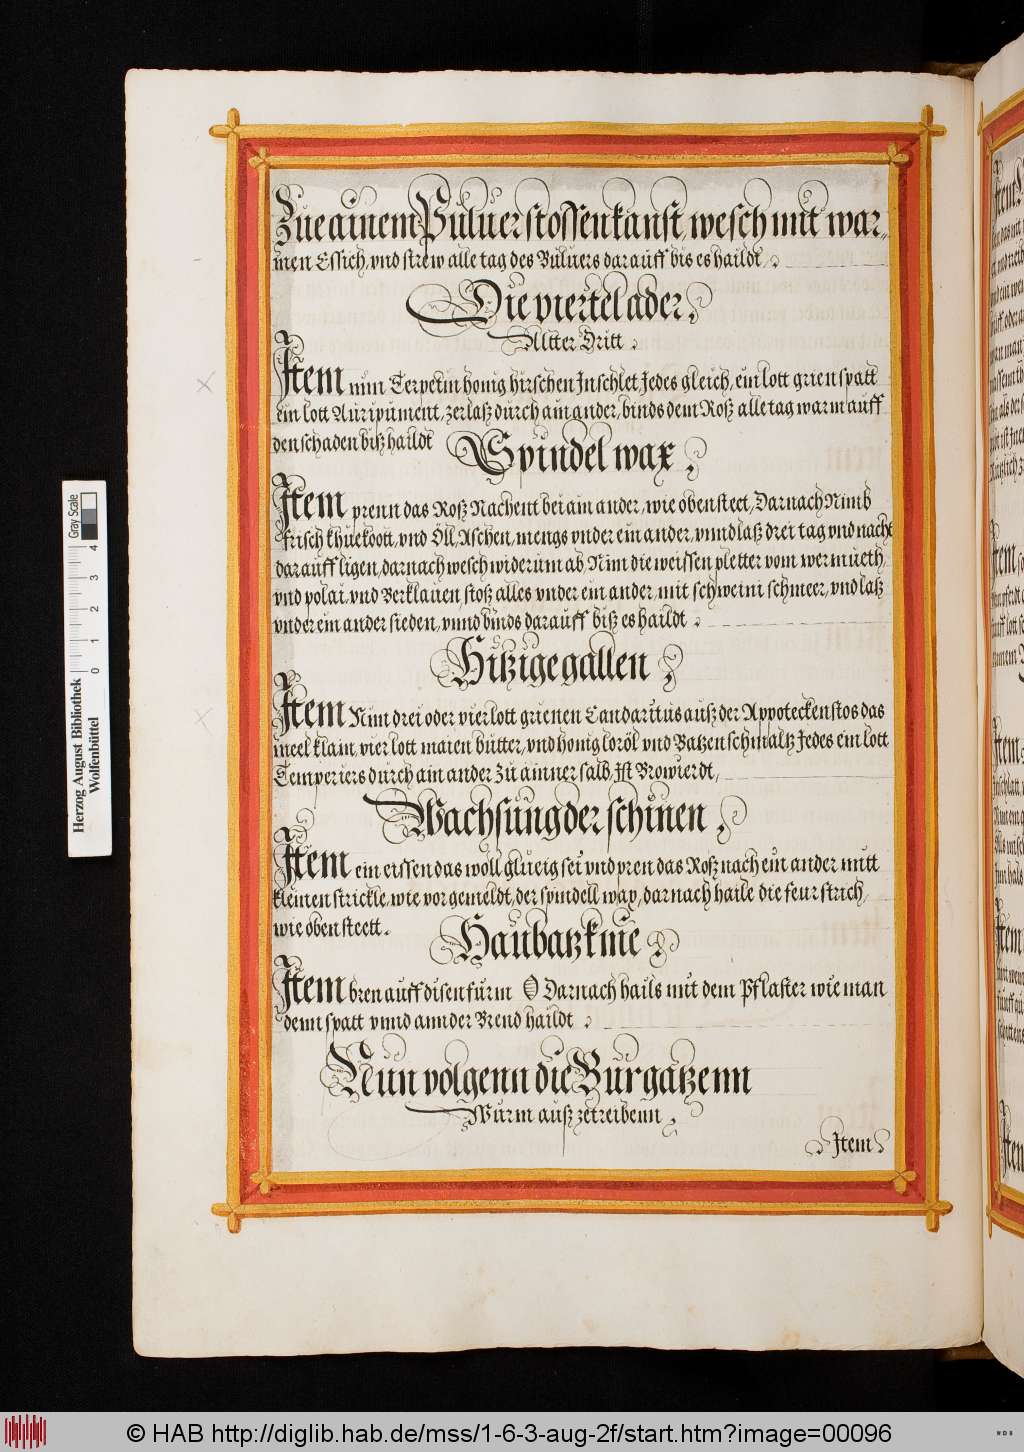 Zue ainem Puluer stossen kanst, wesch mit war-
men Essich, vnd strew alle tag des Puluers darauff bis es haildt,
Die viertel ader,
Alter Dritt.
Item nim Terpetin honig hirschen Inschlet Jedes gleich, ein lott grien spatt
ein lott Auripiment, zerlaß durch ain ander, binds dem Roß alle tag warm auff
den schaden biß haildt
Spindel wax,
Item prenn das Roß Nachent bei ain ander, wie oben steet, Darnach Nimb
frisch khüekoott, vnd Öll, Aschen, mengs vnder ein ander, vnnd laß drei tag vnd nacht
darauff ligen, darnach wesch widerum ab, Nim die weissen pletter vom wermueth,
vnd polai, vnd Berklauen, stoß alles vnder ein ander, mit schweini schmeer, vnd laß
vnder ein ander sieden, vnnd binds darauff biß es haildt.
Hitzige gallen
Item Nim drei oder vier lott grienen Candaritus auß der Appotecken stos das
meel klain, vier lott maien butter, vnd honig loröl vnd Batzen schmaltz Jedes ein lott
Temperiers durch ain ander zu ainner salb, Ist Browierdt,
Wachsung der schinen,
Item ein eissen das woll glüeig sei vnd pren das Roß nach ein ander mitt
kleinen strickle, wie vor gemeldt, der spindell wax, darnach haile die feur strich,
wie oben steett.
Haubatz knie
Item bren auff disen furm O Darnach hails mit dem Pflaster wie man
denn spatt vnnd annder Brend haildt
Nun volgenn die Burgatzenn
Wurm auß zetreibenn,
Item
Herzog August Bibliothek
Wolfenbüttel
0 1 2 3 4
Gray Scale
© HAB http://diglib.hab.de/mss/1-6-3-aug-2f/start.htm?image=00096